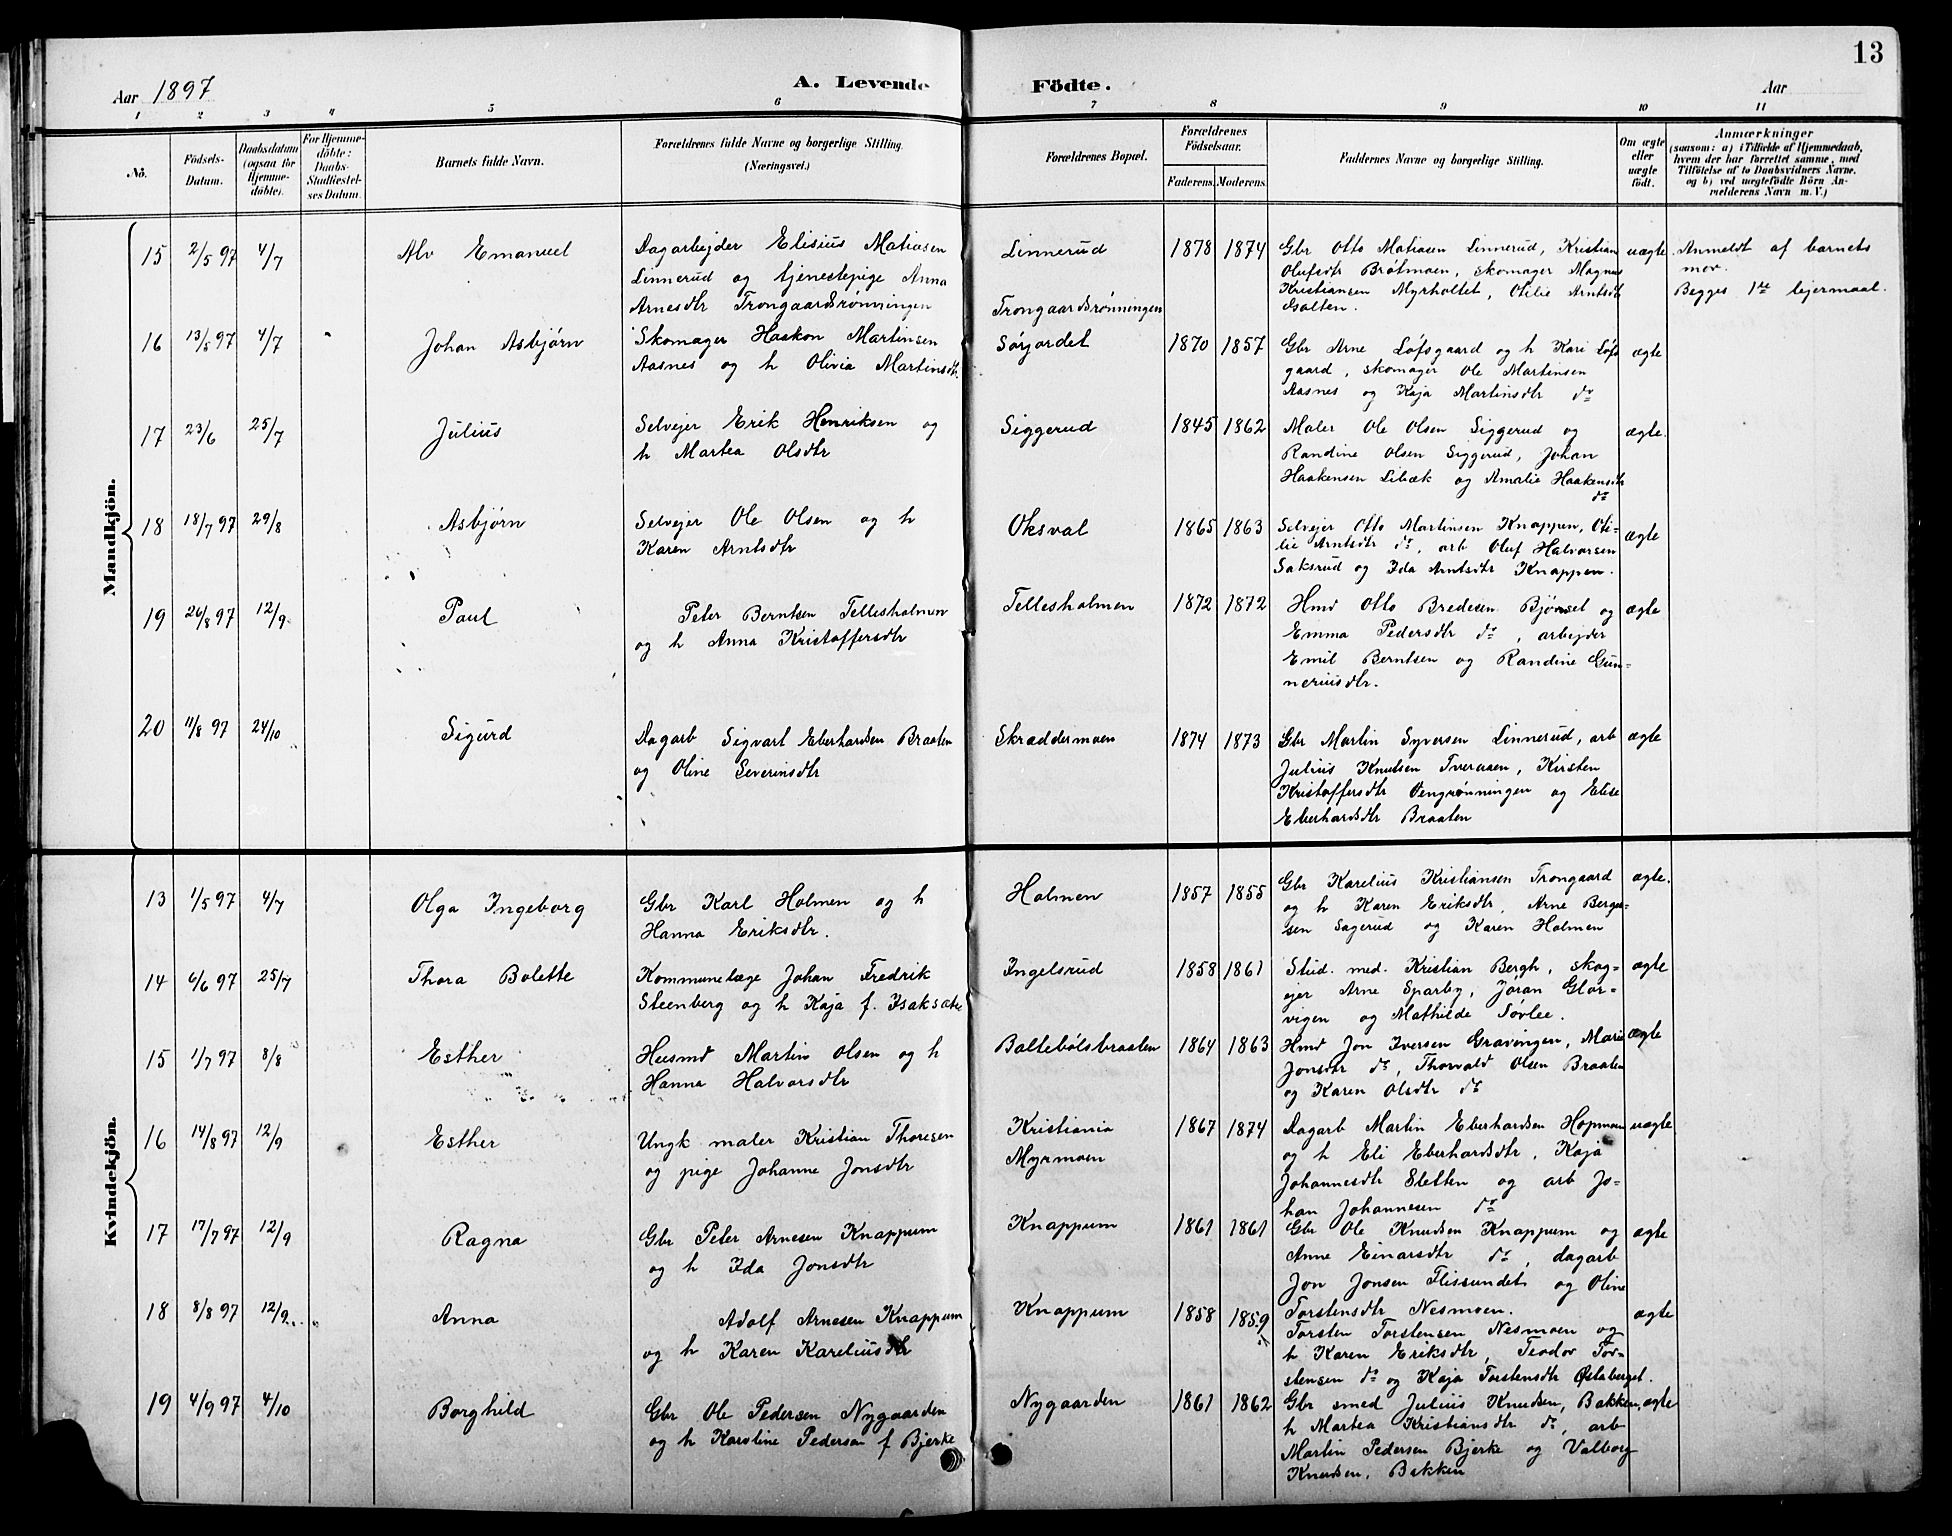 13
Aar 1897
A. Levende Födte.
Aar
1 2 3 4 5 6 7 8 9 10 11
No.
Födsels-Datum.
Daabsdatum (ogsaa for Hjemmedöbte).
For Hjemmedöbte: Daabs-Stadfæstelses Datum.
Barnets fulde Navn.
Forældrenes fulde Navne og borgerlige Stilling.
(Næringsvei.)
Forældrenes Bopæl.
Forældrenes Födselsaar.
Faderens. Moderens.
Faddernes Navne og borgerlige Stilling.
Om ægte eller uægte födt.
Anmærkninger
(saasom: a) i Tilfælde af Hjemmedaab, hvem der har forrettet samme, med Tilföielse af to Daabsvidners Navne. og b) ved uægtefödte Börn Anmelderens Navn m. V.)
Mandkjön.
15 2/5 97 4/7 Alv Emanuel
Dagarbejder Elisius Matiasen
Linnerud og tjenestepige Anna
Arnesdtr Trongaardsrønningen
Linnerud
Trongaardsrønningen
1878 1874
Gbr Otto Matiasen Linnerud, Kristian
Olufsdtr Bråtmoen, skomager Magnus
Kristiansen Myrholtet, Otilie Arntsdtr
Galten.
uægte
Anmeldt af barnets
mor.
Begges 1ste lejermaal.
16 13/5 97 4/7 Johan Asbjørn
Skomager Haakon Martinsen
Aasnes og h Olivia Martinsdtr.
Sørjordet
1870 1857
Gbr Arne Løfsgaard og h Kari Løfs
gaard, skomager Ole Martinsen
Aasnes og Kaja Martinsdtr do
ægte
17 23/6 25/7 Julius
Selvejer Erik Henriksen og
h Martea Olsdtr
Siggerud
1845 1862
Maler Ole Olsen Siggerud og
Randine Olsen Siggerud, Johan
Haakensen Libæk og Amalie Haakensdtr
do
ægte.
18 18/7 97 29/8 Asbjørn
Selvejer Ole Olsen og h
Karen Arntsdtr
Oksval
1865 1863
Selvejer Otto Martinsen Knappen, Oti-
lie Arntsdtr do, arb Oluf Halvorsen
Saksrud og Ida Arntsdtr Knappen.
ægte
19 26/8 97 12/9 Paul
Peter Berntsen Tellesholmen
og h Anna Kristoffersdtr
Tellesholmen
1872 1872
Hmd Otto Bredesen Bjønset og
Emma Pedersdtr do, arbejder
Emil Berntsen og Randine Gun-
neriusdtr.
ægte
20 11/8 97 24/10 Sigurd
Dagarb Sigvart Eberhardsen Braaten
og Oline Severinsdtr
Skræddermoen
1874 1873
Gbr Martin Syversen Linnerud, arb
Julius Knutsen Tveraaen, Kirsten
Kristoffersdtr Oengrønningen og Elise
Eberhardsdtr Braaten
ægte
Kvindekjön.
13 1/5 97 4/7 Olga Ingeborg
Gbr Karl Holmen og h
Hanna Eriksdtr.
Holmen
1857 1855
Gbr Karelius Kristiansen Trongaard
og h Karen Eriksdtr, Arne Berge-
sen Sagerud og Karen Holmen
ægte.
14 6/6 97 25/7 Thora Bolette
Kommunelæge Johan Fredrik
Steenberg og h Kaja f. Isaksæter
Ingelsrud
1858 1861
Stud. med. Kristian Bergh, skog-
ejer Arne Sparby, Joran Glor-
vigen og Mathilde Sørlee.
ægte
15 1/7 97 8/8 Esther
Husmd Martin Olsen og h
Hanna Halvorsdtr
Baltebølsbraaten
1864 1863
Hmd Jon Iversen Gravingen, Marie
Jonsdtr do, Thorvald Olsen Braaten
og Karen Olsdtr do
ægte
16 14/8 97 12/9 Esther
Ungk maler Kristian Thoresen
og pige Johanne Jonsdtr
Kristiania
Myrmoen
1867 1874
Dagarb Martin Eberhardsen Hopmoen
og h Eli Eberhardsdtr, Kaja
Johannesdtr Sletten og arb Jo-
han Johannesen do
uægte
17 17/7 97 12/9 Ragna
Gbr Peter Arnesen Knappum
og h Ida Jonsdtr
Knappum
1861 1861
Gbr Ole Knudsen Knappum og
Anne Einarsdtr do, dagarb
Jon Jonsen Flissundet og Oline
Torstensdtr Nesmoen.
ægte
18 8/8 97 12/9 Anna
Adolf Arnesen Knappum
og h Karen Kareliusdtr
Knappum
1858 1859
Torsten Torstensen Nesmoen og
h Karen Eriksdtr, Teodor Tor-
stensen do og Kaja Torstensdtr Østaberget.
ægte
19 4/9 97 4/10 Borghild
Gbr Ole Pedersen Nygaarden
og h Karoline Pedersen f Bjerke
Nygaarden
1861 1862
Gbr smed Julius Knudsen, Bakken,
h Martea Kristiansdtr do, arb
Martin Pedersen Bjerke og Valborg
Knudsen, Bakken
ægte